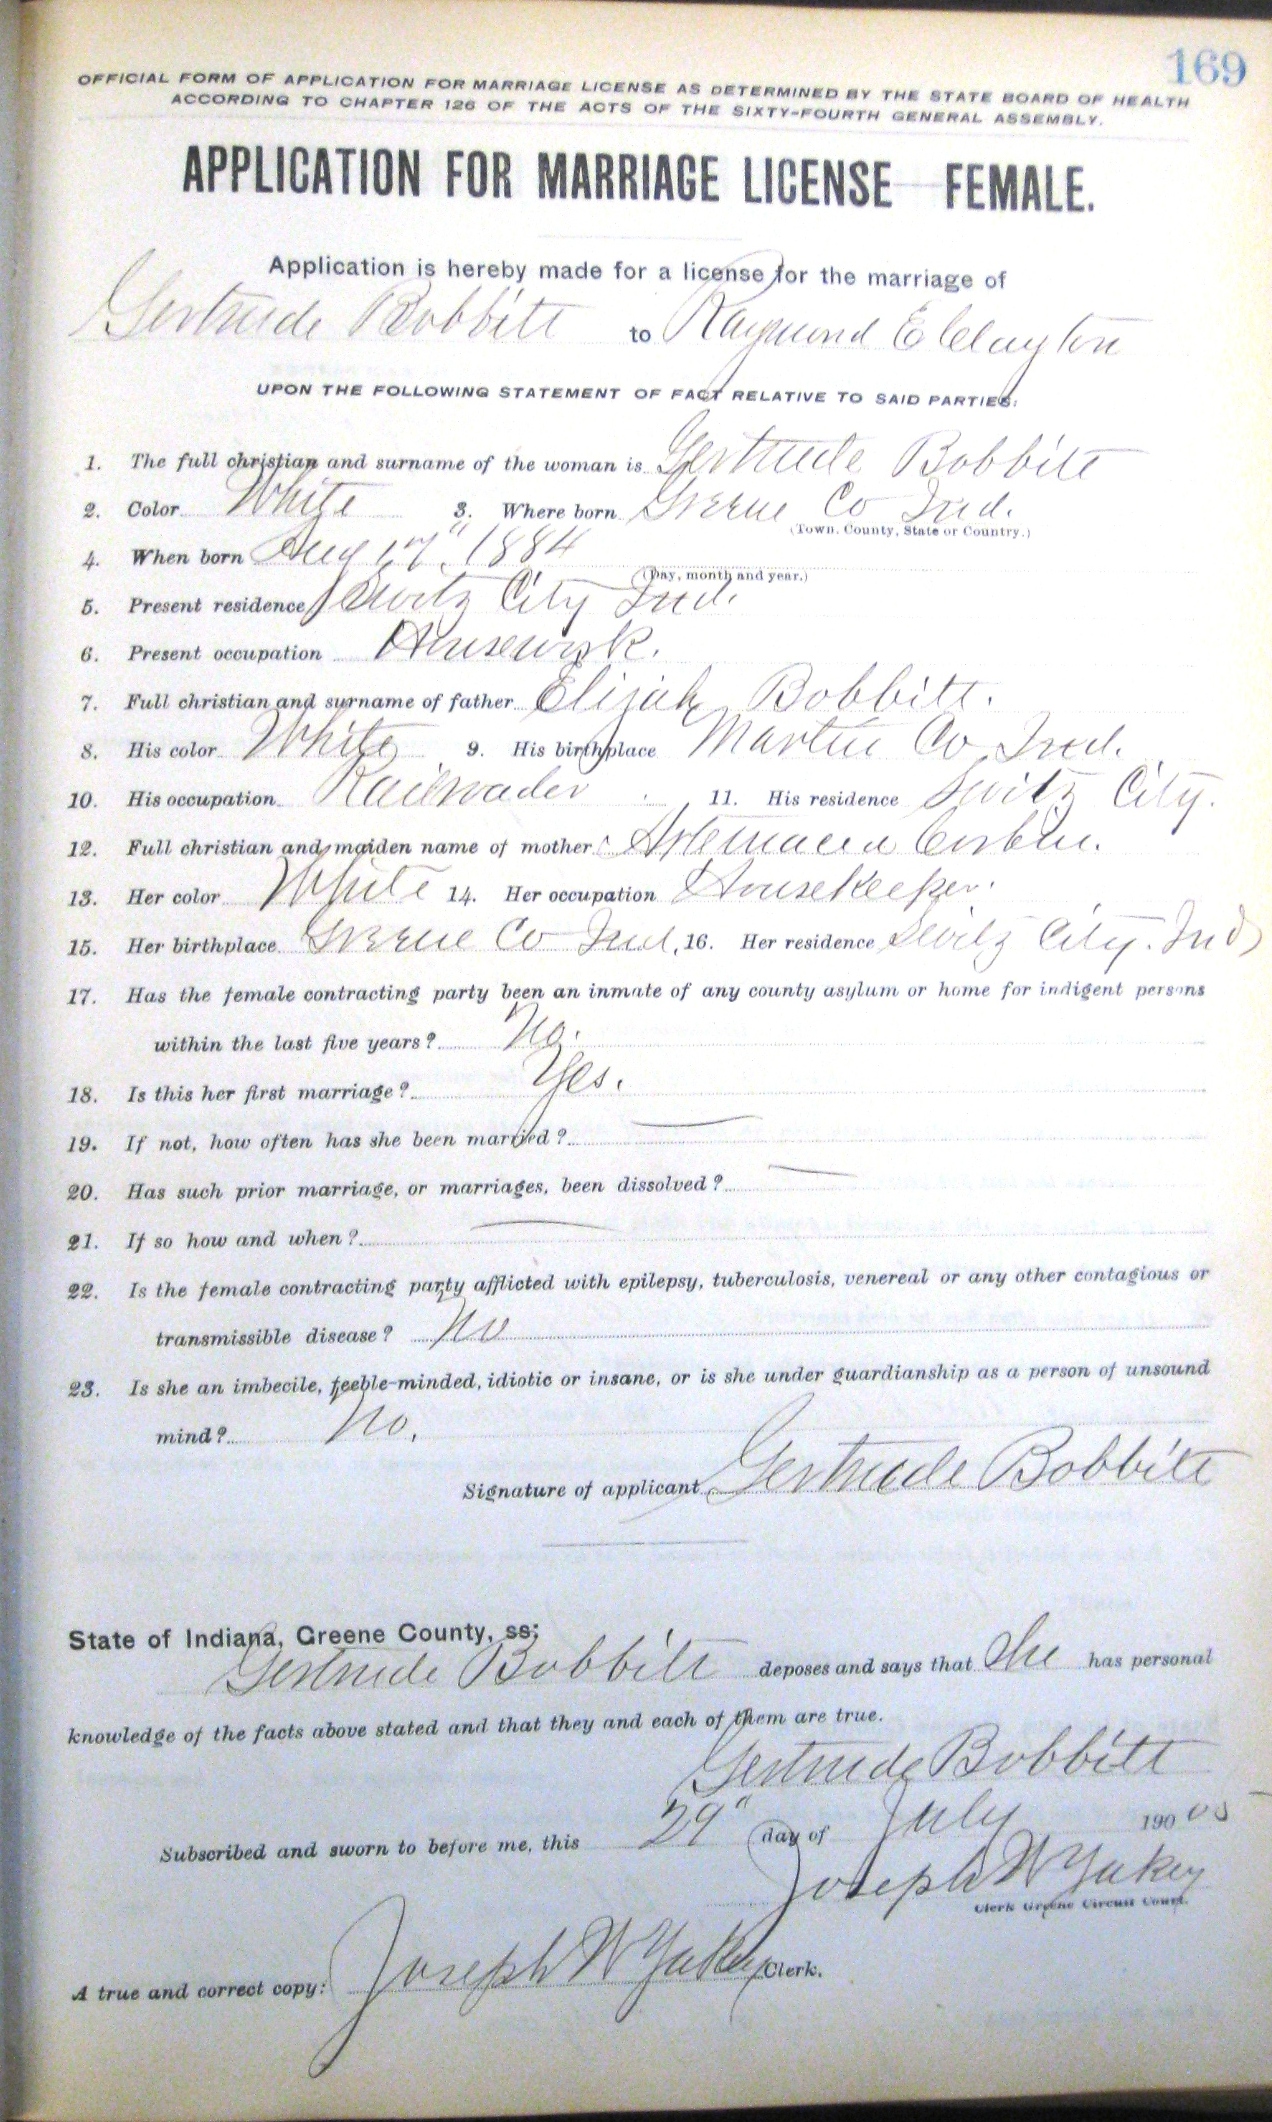 169
OFFICIAL FORM OF APPLICATION FOR MARRIAGE LICENSE AS DETERMINED BY THE STATE BOARD OF HEALTH
ACCORDING TO CHAPTER 126 OF THE ACTS OF THE SIXTY-FOURTH GENERAL ASSEMBLY.
APPLICATION FOR MARRIAGE LICENSE FEMALE.
Application is hereby made for a license for the marriage of
Gertrude Bobbitt to Raymond E Clayton
UPON THE FOLLOWING STATEMENT OF FACT RELATIVE TO SAID PARTIES:
1. The full christian and surname of the woman is Gertrude Bobbitt
2. Color White 3. Where born Greene Co Ind.
(Town, County, State or Country.)
4. When born Aug 17" 1884
(Day, month and year.)
5. Present residence Switz City Ind.
6. Present occupation Housework.
7. Full christian and surname of father Elijah Bobbitt.
8. His color White 9. His birthplace Martin Co Ind.
10. His occupation Railroader 11. His residence Switz City.
12. Full christian and maiden name of mother Corbin.
13. Her color White 14. Her occupation Housekeeper.
15. Her birthplace Greene Co Ind. 16. Her residence Switz City. Ind
17. Has the female contracting party been an inmate of any county asylum or home for indigent persons
within the last five years? No.
18. Is this her first marriage? Yes.
19. If not, how often has she been married? —
20. Has such prior marriage, or marriages, been dissolved? —
21. If so how and when? —
22. Is the female contracting party afflicted with epilepsy, tuberculosis, venereal or any other contagious or
transmissible disease? No
23. Is she an imbecile, feeble-minded, idiotic or insane, or is she under guardianship as a person of unsound
mind? No.
Signature of applicant Gertrude Bobbitt
State of Indiana, Greene County, ss:
Gertrude Bobbitt deposes and says that She has personal
knowledge of the facts above stated and that they and each of them are true.
Gertrude Bobbitt
Subscribed and sworn to before me, this 29" day of July 190
Joseph W Yakey
Clerk Greene Circuit Court.
A true and correct copy: Joseph W Yakey Clerk.